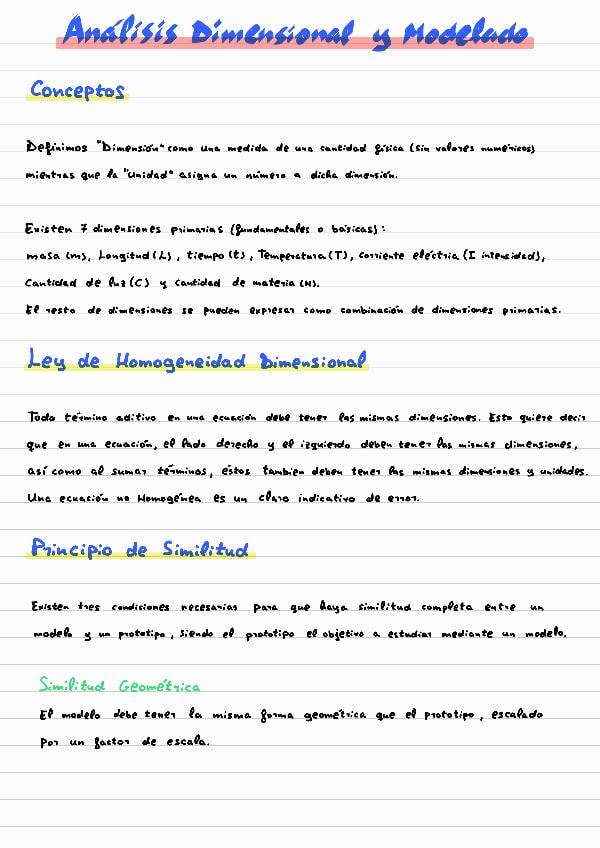 Análisis Dimensional y Modelado
Conceptos
Definimos "Dimensión" como una medida de una cantidad física (sin valores numéricos)
mientras que la "Unidad" asigna un número a dicha dimensión.
Existen 7 dimensiones primarias (fundamentales o básicas):
masa (m), Longitud (L), tiempo (t), Temperatura (T), corriente eléctria (I intensidad),
Cantidad de luz (C) y cantidad de materia (N).
El resto de dimensiones se pueden expresar como combinación de dimensiones primarias.
Ley de Homogeneidad Dimensional
Todo término aditivo en una ecuación debe tener las mismas dimensiones. Esto quiere decir
que en una ecuación, el lado derecho y el izquierdo deben tener las mismas dimensiones,
así como al sumar términos, estos tambien deben tener las mismas dimensiones y unidades.
Una ecuación no Homogénea es un claro indicativo de error.
Principio de Similitud
Existen tres condiciones necesarias para que haya similitud completa entre un
modelo y un prototipo, siendo el prototipo el objetivo a estudiar mediante un modelo.
Similitud Geométrica
El modelo debe tener la misma forma geométrica que el prototipo, escalado
por un factor de escala.